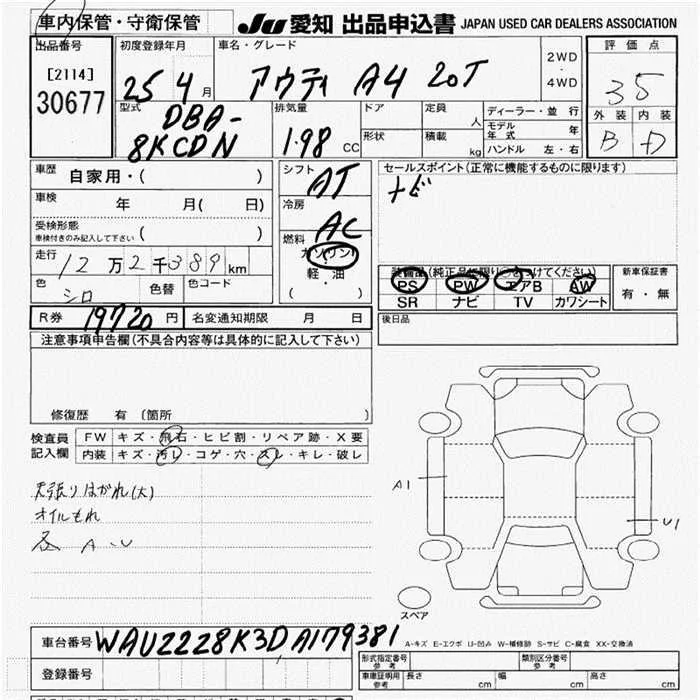 車内保管・守衛保管
JU 愛知 出品申込書 JAPAN USED CAR DEALERS ASSOCIATION
出品番号 初度登録年月 車名・グレード 2WD ・ 4WD 評価点
[2114] 25 4 月 アウディ A4 20T 35
30677 外装 内装
型式 排気量 ドア 定員 人 ディーラー・並 行
DBA- 形状 積載 kg モデル年式 年 B D
8KCDN 1.98 CC ハンドル 左・右
車歴 自家用・( ) シフト AT セールスポイント(正常に機能するものに限ります)
車検 年 月( 日) 冷房 AC ナビ
受検形態
車検付きのみ記入して下さい ( )
燃料 ガソリン
走行 12万2千389km 軽・油 装備品(純正品に限り○をつけてください) 新車保証書
色 シロ 色替 色コード ( ) PS PW エアB AW 有・無
SR ナビ TV カワシート
R券 19720 円 名変通知期限 月 日 後日品
注意事項申告欄(不具合内容等は具体的に記入して下さい)
修復歴 有 (箇所 )
検査員 FW キズ・飛石・ヒビ割・リペア跡・X要
記入欄 内装 キズ・汚レ・コゲ・穴・スレ・キレ・破レ
天張りはがれ(大)
オイルもれ
各 A・U
A1
U1
スペア
車台番号 WAUZZZ8K3DA179381
A-キズ E-エクボ U-凹み W-補修跡 S-サビ C-腐食 XX-交換済
登録番号 形式指定番号 参考 類別区分番号 参考
車庫証明用 参考 長さ cm 幅 cm 高さ cm